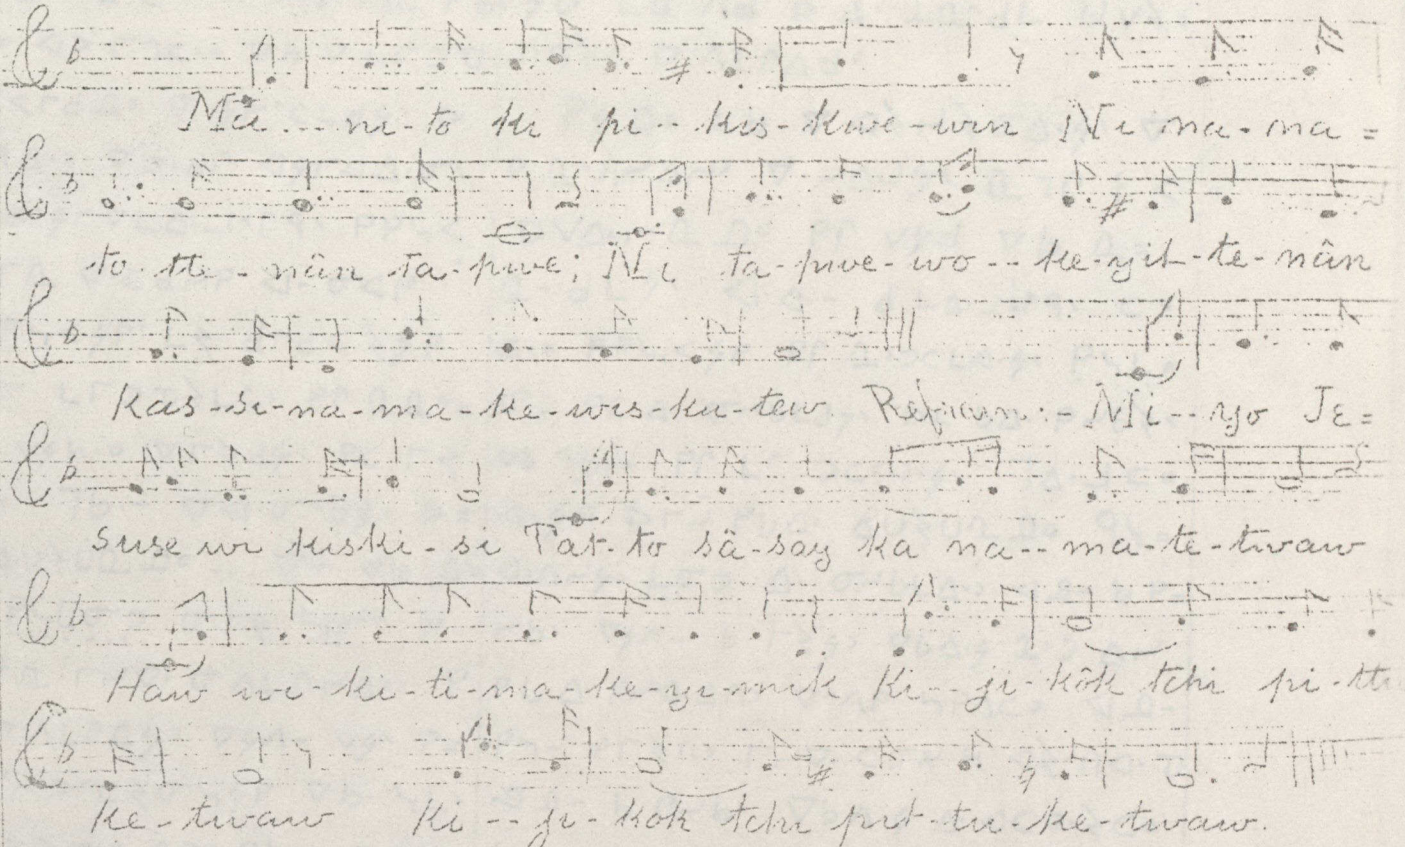 Ma...ni-to ki pi--kis-kwe-win Ni na-na=
to-tte--nân ta-pwe; Ni ta-pwe-wo--ke-yit-te-nân
Kas-si-na-ma-ke-wis-ku-tew Refrain:- Mi--yo Je=
suse wi kiski-si Tat-to sâ-say ka na--ma-te-twaw
Haw wi-ki-ti-ma-ke-yi-mik Ki--ji-kôk tchi pi-ttu
ke-twaw Ki--ji-kok tchi pit-tu-ke-twaw.